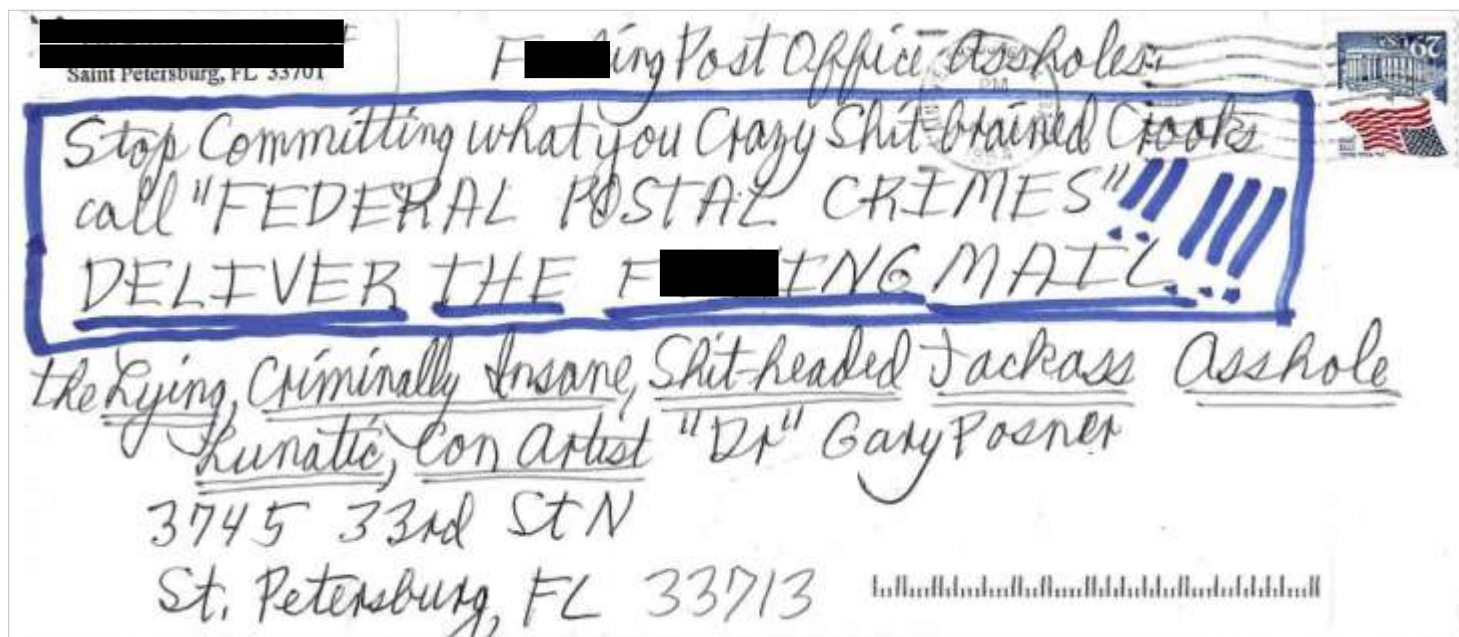 Saint Petersburg, FL 33701
F ing Post Office Assholes:
PM
29
USA
Stop Committing what you Crazy Shit-brained Crooks
call "FEDERAL POSTAL CRIMES"!! !!!
DELIVER THE F ING MAIL...
the Lying, Criminally Insane, Shit-headed Jackass Asshole
Lunatic, Con Artist "Dr" Gary Posner
3745 33rd St N
St. Petersburg, FL 33713